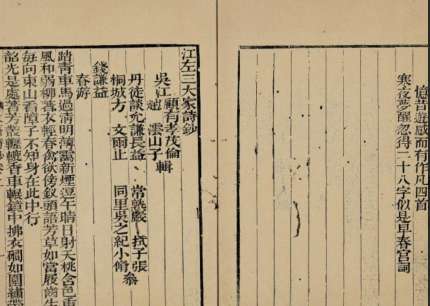 憶昔遊感而有作凡四首
寒夜夢醒忽得二十八字似是早春宮詞
江左三大家詩鈔
吳江 顧有孝茂倫 輯
趙 澐山子
丹徒談允謙長益 常熟嚴 拭子張
桐城方 文爾止 同里吳之紀小脩 叅
錢謙益
春游
踏青車馬過清明薄靄新煙逗午晴日射夭桃含邑重
風和弱柳著衣輕春禽欲傍釵頭語芳草如當屐齒生
每向東山看障子不知身在此中行
韶光是處著芳叢轆轆香車輾鏡中拂水欄如圍繡帶